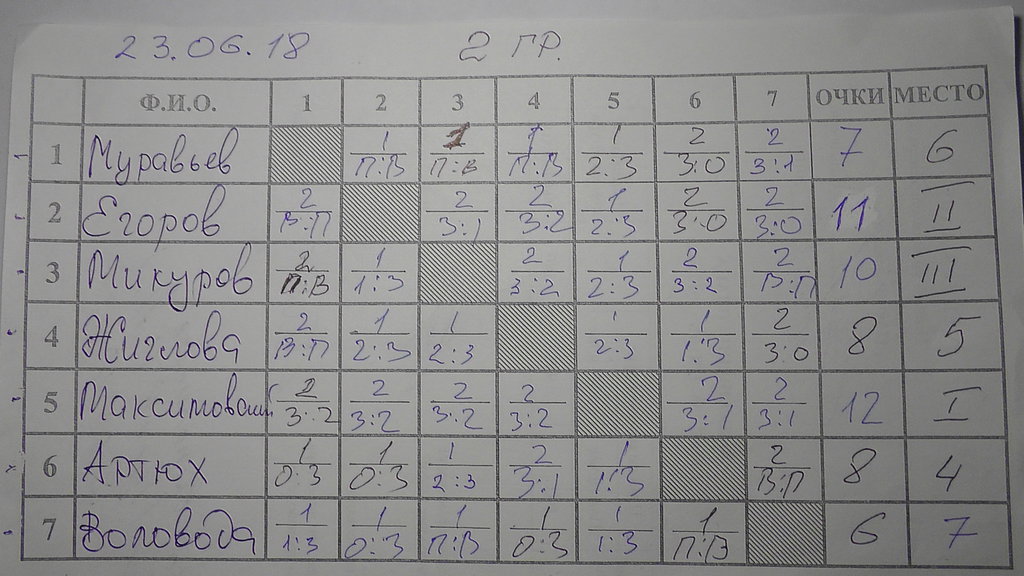 23.06.18 2 ГР.
Ф.И.О. 1 2 3 4 5 6 7 ОЧКИ МЕСТО
1 Муравьев 1 П:В 1 П:В 1 П:В 1 2:3 2 3:0 2 3:1 7 6
2 Егоров 2 В:П 2 3:1 2 3:2 1 2:3 2 3:0 2 3:0 11 II
3 Микуров 2 П:В 1 1:3 2 3:2 1 2:3 2 3:2 2 В:П 10 III
4 Жиглова 2 В:П 1 2:3 1 2:3 1 2:3 1 1:3 2 3:0 8 5
5 2 3:2 2 3:2 2 3:2 2 3:2 2 3:1 2 3:1 12 I
6 Артюх 1 0:3 1 0:3 1 2:3 2 3:1 1 1:3 2 В:П 8 4
7 Воловода 1 1:3 1 0:3 1 П:В 1 0:3 1 1:3 1 П:В 6 7